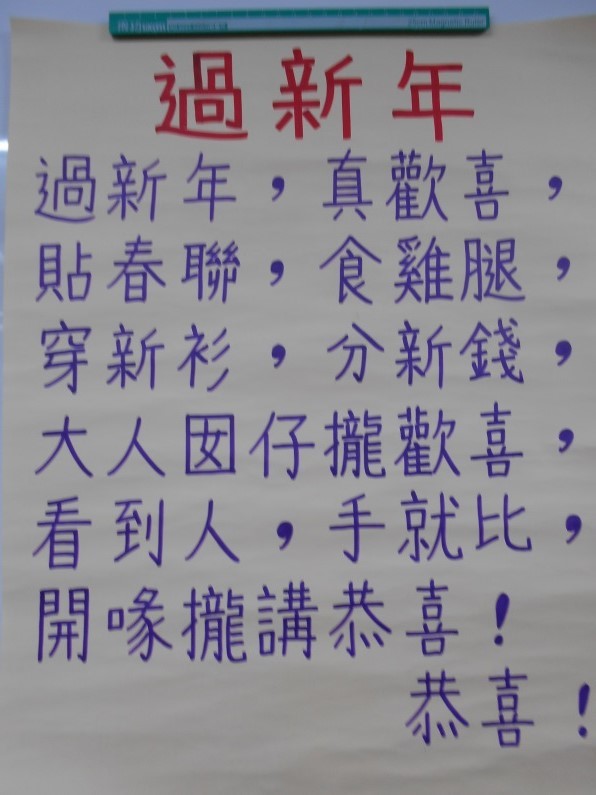 過新年
過新年，真歡喜，
貼春聯，食雞腿，
穿新衫，分新錢，
大人囡仔攏歡喜，
看到人，手就比，
開喙攏講恭喜！
恭喜！